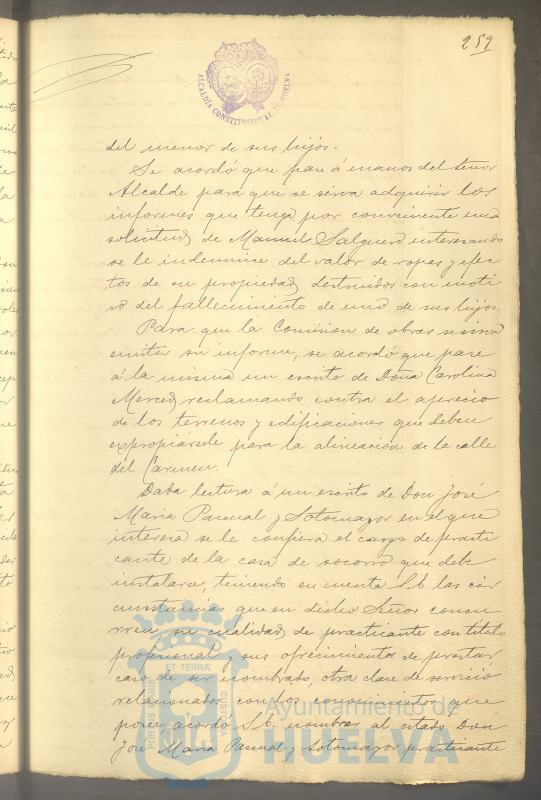 259
ALCALDÍA CONSTITUCIONAL DE HUELVA
del menor de sus hijos.
Se acordó que pase á manos del Señor
Alcalde para que se sirva adquirir los
informes que tenga por conveniente una
solicitud de Manuel Salguero interesando
se le indemnice del valor de ropas y efec
tos de su propiedad destruidos con moti
vo del fallecimiento de uno de sus hijos.
Para que la Comision de obras se sirva
emitir su informe, se acordó que pase
á la misma un escrito de Doña Carolina
Merced reclamando contra el aprecio
de los terrenos y edificaciones que deben
expropiarsele para la alineación de la calle
del Carmen.
Dada lectura á un escrito de Don José
Maria Pascual y Sotomayor en el que
interesa se le confiera el cargo de practi
cante de la casa de socorro que debe
instalarse, teniendo en cuenta S.E. las cir
cunstancias que en dicho Señor concu
rren, su cualidad de practicante con titulo
profesional y sus ofrecimientos de prestar
caso de ser nombrado, otra clase de servicio
relacionados con los conocimientos que
posee, acordó S.E. nombrar al citado Don
José Maria Pascual y Sotomayor practicante
Ayuntamiento de
HUELVA
PORTUS MARIS ET TERRAE CUSTODIA